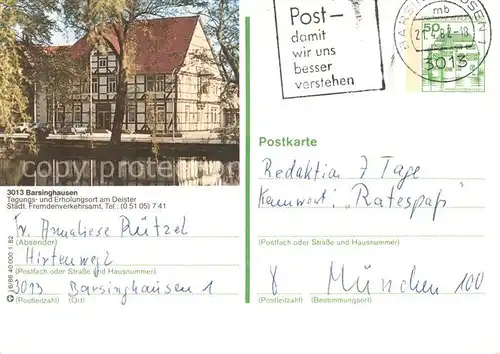 Post-
damit
wir uns
besser
verstehen
BARSINGHAUSEN
mb
3013
50
3013 Barsinghausen
Tagungs- und Erholungsort am Deister
Städt. Fremdenverkehrsamt, Tel.: (0 51 05) 7 41
Fr. Annaliese Rützel
(Absender)
Hirtenweg 2
(Postfach oder Straße und Hausnummer)
3013 Barsinghausen 1
(Postleitzahl) (Ort)
6/86 40 000 1.82
Postkarte
Redaktion 7 Tage
Kennwort: "Ratespaß"
(Postfach oder Straße und Hausnummer)
8 München 100
(Postleitzahl) (Bestimmungsort)
copyright-postkarten